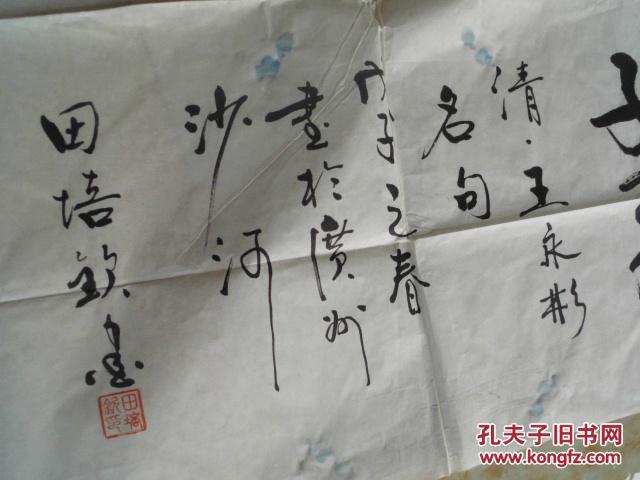 清·王永彬
名句
戊子之春
書於廣州
沙河
田培欽書
田培
欽印
孔夫子旧书网
www.kongfz.com